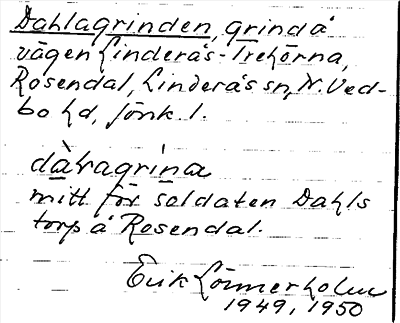 Dahlagrinden, grind å
vägen Linderås-Trehörna,
Rosendal, Linderås sn, N. Ved-
bo hd, Jönk. l.
dàɽagrìna
mitt för soldaten Dahls
torp å Rosendal.
Erik Lönnerholm
1949, 1950